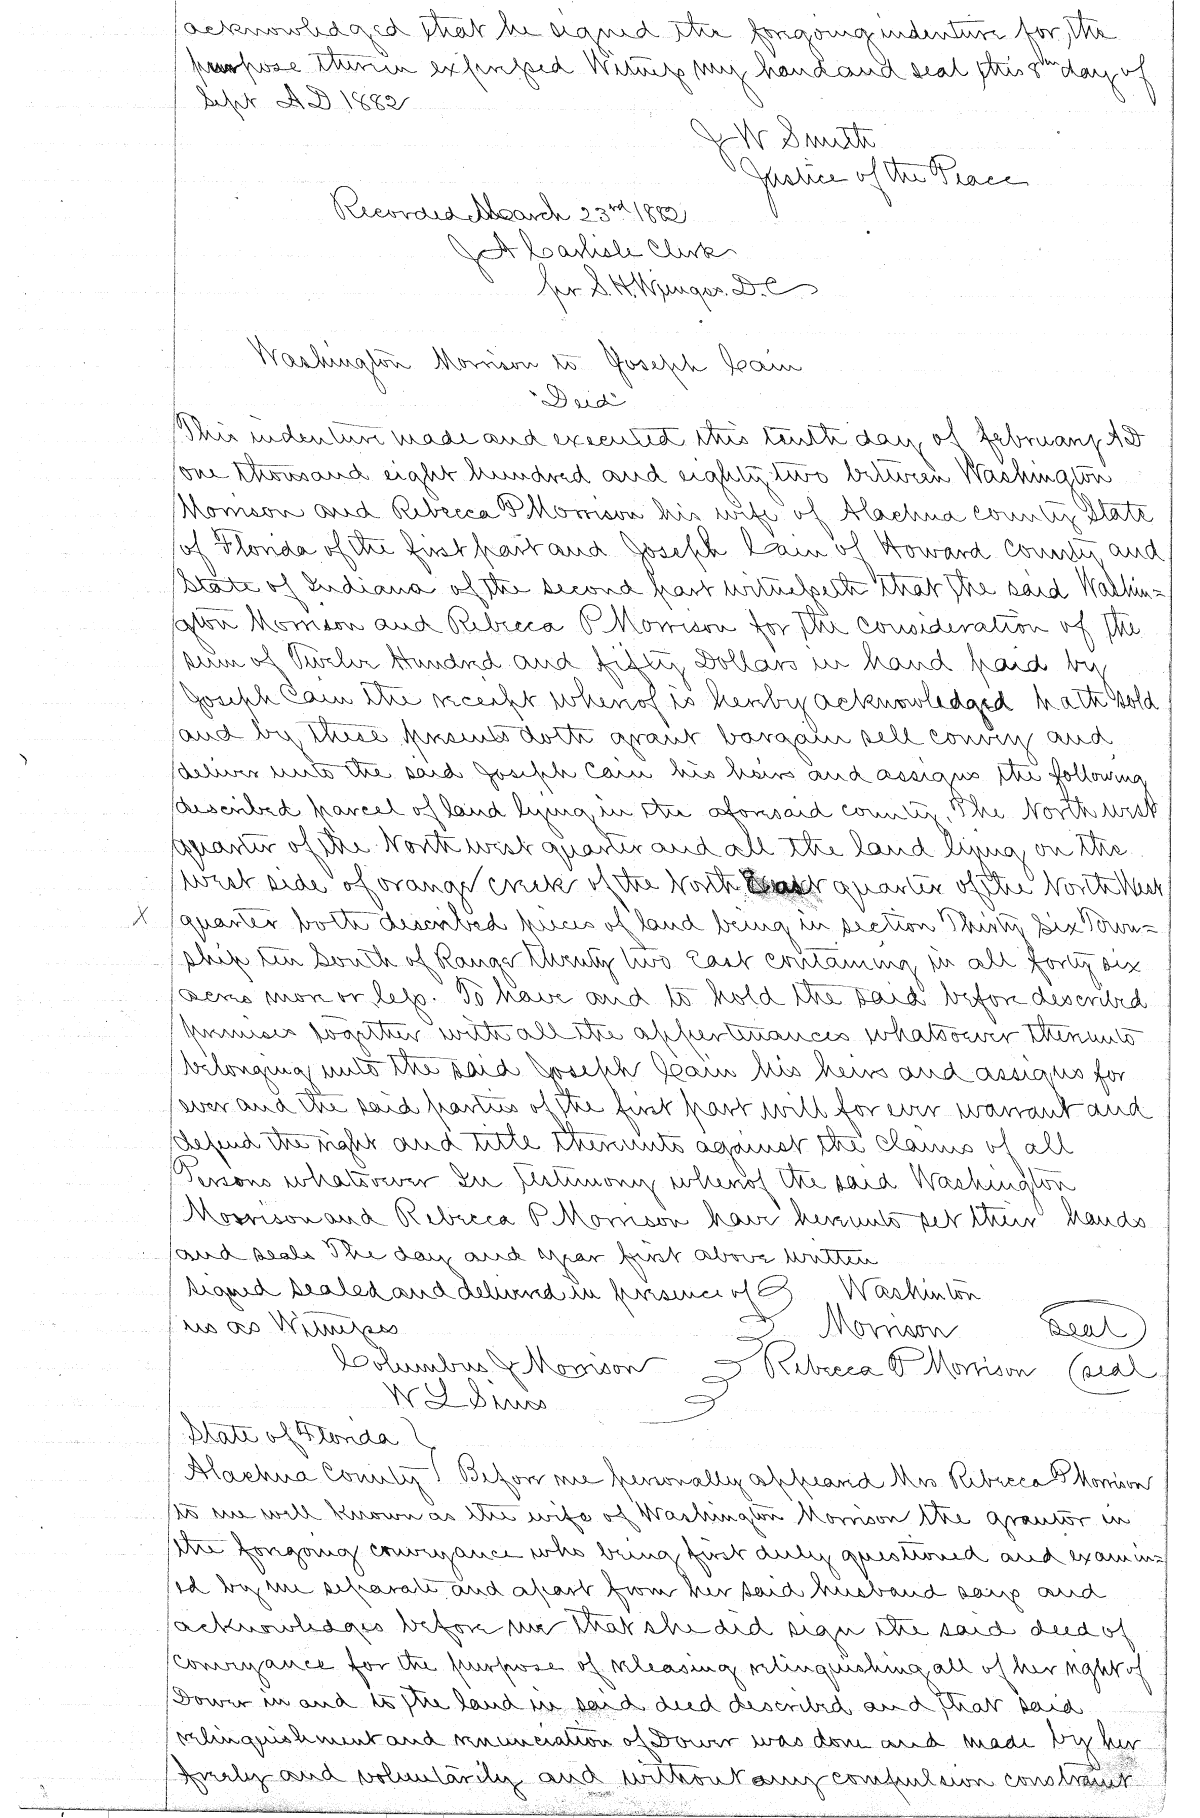 acknowledged that he signed the forgoing indenture for the
purpose therein expressed Witness my hand and seal this 8th day of
Sept AD 1882
J W Smith
Justice of the Peace
Recorded March 23rd 1882
J A Carlisle Clerk
per S. H. D. C
Washington Morrison to Joseph Cain
"Deed"
This indenture made and executed this tenth day of february AD
one thousand eight hundred and eighty two between Washington
Morrison and Rebecca P Morrison his wife of Alachua county State
of Florida of the first part and Joseph Cain of Howard county and
State of Indiana of the second part witnesseth that the said Washin=
gton Morrison and Rebecca P Morrison for the consideration of the
sum of Twelve Hundred and fifty Dollars in hand paid by
Joseph Cain the receipt whereof is hereby acknowledged hath sold
and by these presents doth grant bargain sell convey and
deliver unto the said Joseph Cain his heirs and assigns the following
described parcel of land lying in the aforesaid county. The North west
quarter of the North west quarter and all the land lying on the
west side of orange creek of the North East quarter of the North West
X quarter both described pieces of land being in section Thirty Six Town=
ship ten South of Range twenty two East containing in all forty six
acres more or less. To have and to hold the said before described
premises together with all the appertenances whatsoever thereunto
belonging unto the said Joseph Cain his heirs and assigns for
ever and the said parties of the first part will for ever warrant and
defend the right and title thereunto against the claims of all
Persons whatsoever In testimony whereof the said Washington
Morrison and Rebecca P Morrison have hereunto set their hands
and seals The day and year first above written
signed sealed and delivered in presence of Washinton
us as Witnesses Morrison Seal
Columbus J Morrison Rebecca P Morrison (seal
W L Sims
State of Florida
Alachua County Before me personally appeared Mrs Rebecca P Morrison
to me well known as the wife of Washington Morrison the grantor in
the forgoing conveyance who being first duly questioned and examin=
ed by me separate and apart from her said husband says and
acknowledges before me that she did sign the said deed of
conveyance for the purpose of releasing relinquishing all of her right of
Dower in and to the land in said deed described and that said
relinquishment and renunciation of Dower was done and made by her
freely and voluntarily and without any compulsion constraint